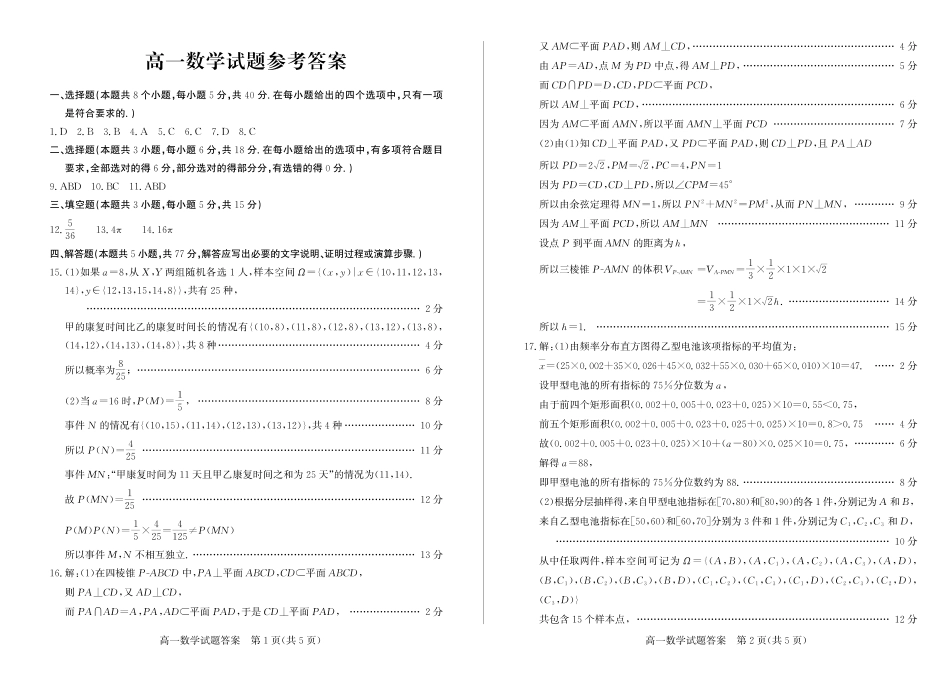 高一数学试题参考答案
一、选择题(本题共 8 个小题,每小题 5 分,共 40 分.在每小题给出的四个选项中,只有一项
是符合要求的.)
1.D 2.B 3.B 4.A 5.C 6.C 7.D 8.C
二、选择题(本题共 3 小题,每小题 6 分,共 18 分.在每小题给出的选项中,有多项符合题目
要求,全部选对的得 6 分,部分选对的得部分分,有选错的得 0 分.)
9.ABD 10.BC 11.ABD
三、填空题(本题共 3 小题,每小题 5 分,共 15 分)
12. 5/36 13.4π 14.16π
四、解答题(本题共 5 小题,共 77 分,解答应写出必要的文字说明、证明过程或演算步骤.)
15.(1)如果 a=8,从 X,Y 两组随机各选 1 人,样本空间 Ω={(x,y)|x∈{10,11,12,13,
14},y∈{12,13,15,14,8}},共有 25 种,
…… 2 分
甲的康复时间比乙的康复时间长的情况有{(10,8),(11,8),(12,8),(13,12),(13,8),
(14,12),(14,13),(14,8)},共 8 种 …… 4 分
所以概率为 8/25; …… 6 分
(2)当 a=16 时,P(M)= 1/5, …… 8 分
事件 N 的情况有{(10,15),(11,14),(12,13),(13,12)},共 4 种 …… 10 分
所以 P(N)= 4/25 …… 11 分
事件 MN:“甲康复时间为 11 天且甲乙康复时间之和为 25 天”的情况为(11,14).
故 P(MN)= 1/25 …… 12 分
P(M)P(N)= 1/5 × 4/25 = 4/125 ≠P(MN)
所以事件 M,N 不相互独立. …… 13 分
16.解:(1)在四棱锥 P-ABCD 中,PA⊥平面 ABCD,CD⊂平面 ABCD,
则 PA⊥CD,又 AD⊥CD,
而 PA∩AD=A,PA,AD⊂平面 PAD,于是 CD⊥平面 PAD, …… 2 分
高一数学试题答案 第 1 页(共 5 页)
又 AM⊂平面 PAD,则 AM⊥CD, …… 4 分
由 AP=AD,点 M 为 PD 中点,得 AM⊥PD, …… 5 分
而 CD∩PD=D,CD,PD⊂平面 PCD,
所以 AM⊥平面 PCD, …… 6 分
因为 AM⊂平面 AMN,所以平面 AMN⊥平面 PCD …… 7 分
(2)由(1)知 CD⊥平面 PAD,又 PD⊂平面 PAD,则 CD⊥PD,且 PA⊥AD
所以 PD=2√2,PM=√2,PC=4,PN=1
因为 PD=CD,CD⊥PD,所以∠CPM=45°
所以由余弦定理得 MN=1,所以 PN²+MN²=PM²,从而 PN⊥MN, …… 9 分
因为 AM⊥平面 PCD,所以 AM⊥MN …… 11 分
设点 P 到平面 AMN 的距离为 h,
所以三棱锥 P-AMN 的体积 V_{P-AMN}=V_{A-PMN}= 1/3 × 1/2 ×1×1×√2
= 1/3 × 1/2 ×1×√2h. …… 14 分
所以 h=1. …… 15 分
17.解:(1)由频率分布直方图得乙型电池该项指标的平均值为:
x̄=(25×0.002+35×0.026+45×0.032+55×0.030+65×0.010)×10=47. …… 2 分
设甲型电池的所有指标的 75%分位数为 a,
由于前四个矩形面积(0.002+0.005+0.023+0.025)×10=0.55<0.75,
前五个矩形面积(0.002+0.005+0.023+0.025+0.025)×10=0.8>0.75 …… 4 分
故(0.002+0.005+0.023+0.025)×10+(a-80)×0.025×10=0.75, …… 6 分
解得 a=88,
即甲型电池的所有指标的 75%分位数约为 88. …… 8 分
(2)根据分层抽样得,来自甲型电池指标在[70,80)和[80,90)的各 1 件,分别记为 A 和 B,
来自乙型电池指标在[50,60)和[60,70]分别为 3 件和 1 件,分别记为 C₁,C₂,C₃ 和 D,
…… 10 分
从中任取两件,样本空间可记为 Ω={(A,B),(A,C₁),(A,C₂),(A,C₃),(A,D),
(B,C₁),(B,C₂),(B,C₃),(B,D),(C₁,C₂),(C₁,C₃),(C₁,D),(C₂,C₃),(C₂,D),
(C₃,D)}
共包含 15 个样本点, …… 12 分
高一数学试题答案 第 2 页(共 5 页)